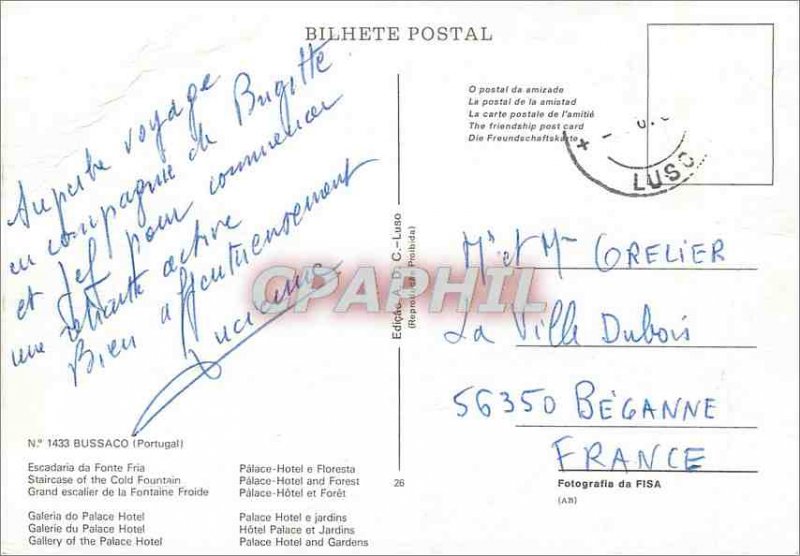 BILHETE POSTAL
Superbe voyage
en compagnie de Brigitte
et Jef pour commencer
une retraite active
Bien affectueusement
Lucienne
O postal da amizade
La postal de la amistad
La carte postale de l'amitié
The friendship post card
Die Freundschaftskarte
LUSO
Mr et Mme GRELIER
La Ville Dubois
56350 BÉGANNE
FRANCE
Edição A. D. C.-Luso
(Reprodução Proibida)
CPAPHIL
N.º 1433 BUSSACO (Portugal)
Escadaria da Fonte Fria
Staircase of the Cold Fountain
Grand escalier de la Fontaine Froide
Galeria do Palace Hotel
Galerie du Palace Hotel
Gallery of the Palace Hotel
Pálace-Hotel e Floresta
Pálace-Hotel and Forest
Pálace-Hôtel et Forêt
Palace Hotel e jardins
Hôtel Palace et Jardins
Palace Hotel and Gardens
26
Fotografia da FISA
(AB)